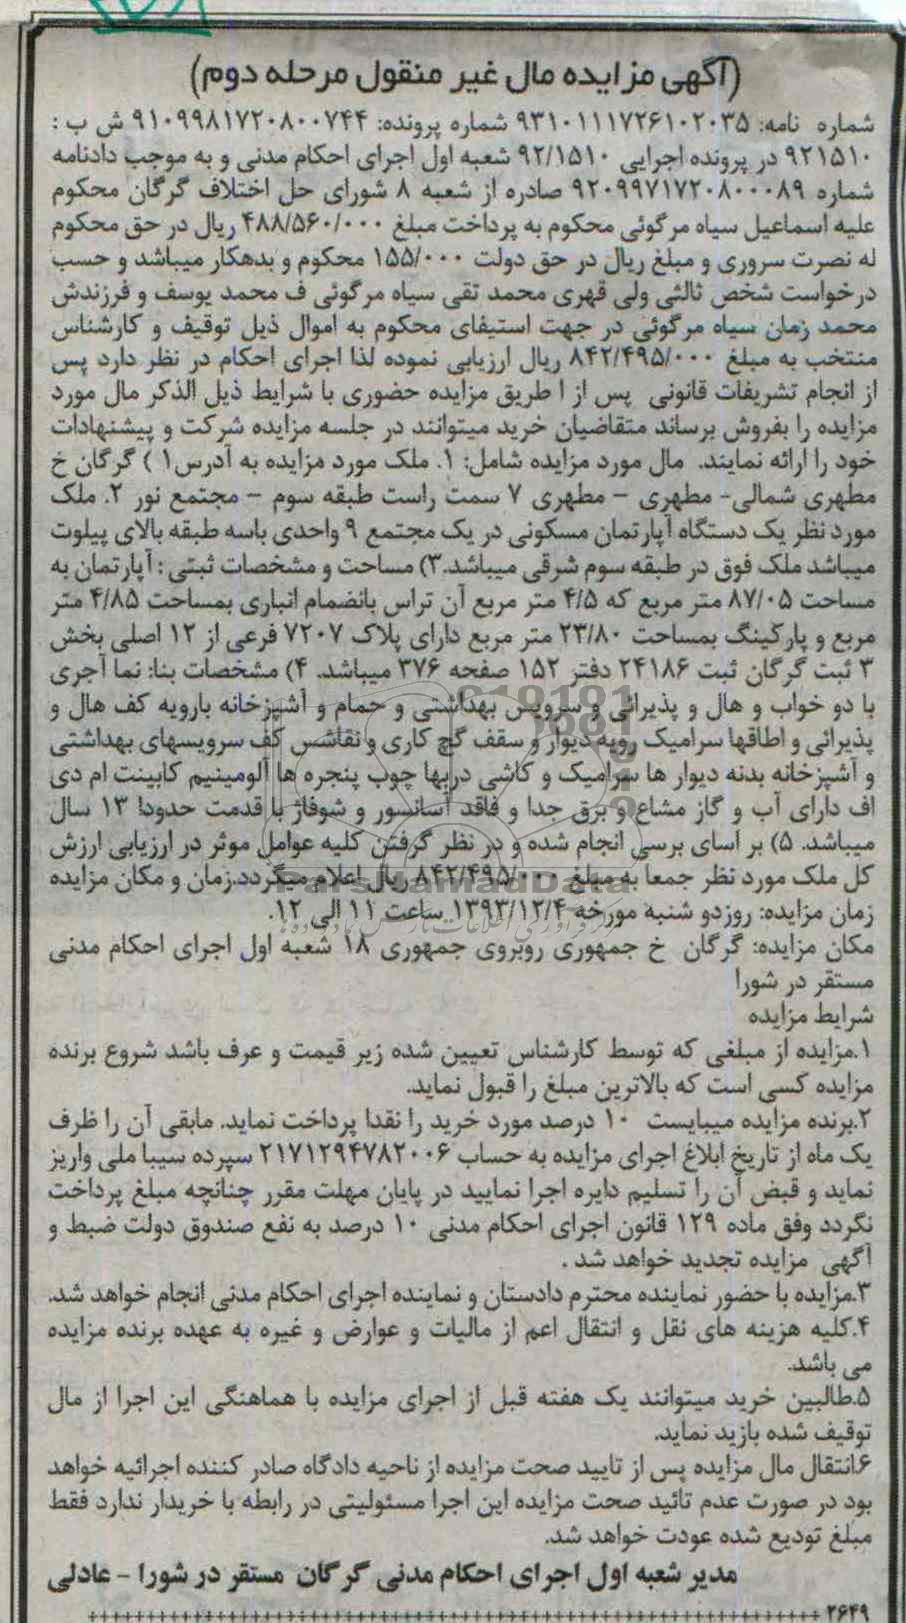 (آگهی مزایده مال غیر منقول مرحله دوم)
شماره نامه: ۹۳۱۰۱۱۱۷۲۶۱۰۲۰۳۵ شماره پرونده: ۹۱۰۹۹۸۱۷۲۰۸۰۰۷۴۴ ش ب :
۹۲۱۵۱۰ در پرونده اجرایی ۹۲/۱۵۱۰ شعبه اول اجرای احکام مدنی و به موجب دادنامه
شماره ۹۲۰۹۹۷۱۷۲۰۸۰۰۰۸۹ صادره از شعبه ۸ شورای حل اختلاف گرگان محکوم
علیه اسماعیل سیاه مرگوئی محکوم به پرداخت مبلغ ۴۸۸/۵۶۰/۰۰۰ ریال در حق محکوم
له نصرت سروری و مبلغ ریال در حق دولت ۱۵۵/۰۰۰ محکوم و بدهکار میباشد و حسب
درخواست شخص ثالثی ولی قهری محمد تقی سیاه مرگوئی ف محمد یوسف و فرزندش
محمد زمان سیاه مرگوئی در جهت استیفای محکوم به اموال ذیل توقیف و کارشناس
منتخب به مبلغ ۸۴۲/۴۹۵/۰۰۰ ریال ارزیابی نموده لذا اجرای احکام در نظر دارد پس
از انجام تشریفات قانونی پس از ا طریق مزایده حضوری با شرایط ذیل الذکر مال مورد
مزایده را بفروش برساند متقاضیان خرید میتوانند در جلسه مزایده شرکت و پیشنهادات
خود را ارائه نمایند. مال مورد مزایده شامل: ۱. ملک مورد مزایده به آدرس۱ ) گرگان خ
مطهری شمالی- مطهری - مطهری ۷ سمت راست طبقه سوم - مجتمع نور ۲. ملک
مورد نظر یک دستگاه آپارتمان مسکونی در یک مجتمع ۹ واحدی باسه طبقه بالای پیلوت
میباشد ملک فوق در طبقه سوم شرقی میباشد.۳) مساحت و مشخصات ثبتی : آپارتمان به
مساحت ۸۷/۰۵ متر مربع که ۴/۵ متر مربع آن تراس بانضمام انباری بمساحت ۴/۸۵ متر
مربع و پارکینگ بمساحت ۲۳/۸۰ متر مربع دارای پلاک ۷۲۰۷ فرعی از ۱۲ اصلی بخش
۳ ثبت گرگان ثبت ۲۴۱۸۶ دفتر ۱۵۲ صفحه ۳۷۶ میباشد. ۴) مشخصات بنا: نما آجری
با دو خواب و هال و پذیرائی و سرویس بهداشتی و حمام و آشپزخانه بارویه کف هال و
پذیرائی و اطاقها سرامیک رویه دیوار و سقف گچ کاری و نقاشی کف سرویسهای بهداشتی
و آشپزخانه بدنه دیوار ها سرامیک و کاشی دربها چوب پنجره ها آلومینیم کابینت ام دی
اف دارای آب و گاز مشاع و برق جدا و فاقد آسانسور و شوفاژ با قدمت حدودا ۱۳ سال
میباشد. ۵) بر اسای برسی انجام شده و در نظر گرفتن کلیه عوامل موثر در ارزیابی ارزش
کل ملک مورد نظر جمعا به مبلغ ۸۴۲/۴۹۵/۰۰۰ ریال اعلام میگردد.زمان و مکان مزایده
ParsNamadData
زمان مزایده: روزدو شنبه مورخه ۱۳۹۳/۱۲/۴ ساعت ۱۱ الی ۱۲.
مکان مزایده: گرگان خ جمهوری روبروی جمهوری ۱۸ شعبه اول اجرای احکام مدنی
مستقر در شورا
شرایط مزایده
۱.مزایده از مبلغی که توسط کارشناس تعیین شده زیر قیمت و عرف باشد شروع برنده
مزایده کسی است که بالاترین مبلغ را قبول نماید.
۲.برنده مزایده میبایست ۱۰ درصد مورد خرید را نقدا پرداخت نماید. مابقی آن را ظرف
یک ماه از تاریخ ابلاغ اجرای مزایده به حساب ۲۱۷۱۲۹۴۷۸۲۰۰۶ سپرده سیبا ملی واریز
نماید و قبض آن را تسلیم دایره اجرا نمایید در پایان مهلت مقرر چنانچه مبلغ پرداخت
نگردد وفق ماده ۱۲۹ قانون اجرای احکام مدنی ۱۰ درصد به نفع صندوق دولت ضبط و
آگهی مزایده تجدید خواهد شد .
۳.مزایده با حضور نماینده محترم دادستان و نماینده اجرای احکام مدنی انجام خواهد شد.
۴.کلیه هزینه های نقل و انتقال اعم از مالیات و عوارض و غیره به عهده برنده مزایده
می باشد.
۵.طالبین خرید میتوانند یک هفته قبل از اجرای مزایده با هماهنگی این اجرا از مال
توقیف شده بازید نماید.
۶.انتقال مال مزایده پس از تایید صحت مزایده از ناحیه دادگاه صادر کننده اجرائیه خواهد
بود در صورت عدم تائید صحت مزایده این اجرا مسئولیتی در رابطه با خریدار ندارد فقط
مبلغ تودیع شده عودت خواهد شد.
مدیر شعبه اول اجرای احکام مدنی گرگان مستقر در شورا - عادلی
۲۶۴۹